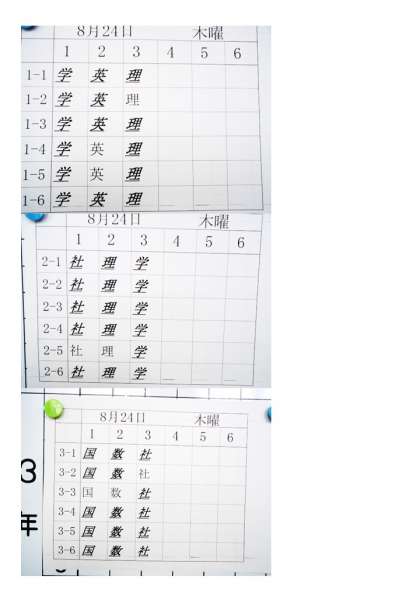 8月24日 木曜
1 2 3 4 5 6
1-1 学 英 理
1-2 学 英 理
1-3 学 英 理
1-4 学 英 理
1-5 学 英 理
1-6 学 英 理
8月24日 木曜
1 2 3 4 5 6
2-1 社 理 学
2-2 社 理 学
2-3 社 理 学
2-4 社 理 学
2-5 社 理 学
2-6 社 理 学
3年
8月24日 木曜
1 2 3 4 5 6
3-1 国 数 社
3-2 国 数 社
3-3 国 数 社
3-4 国 数 社
3-5 国 数 社
3-6 国 数 社